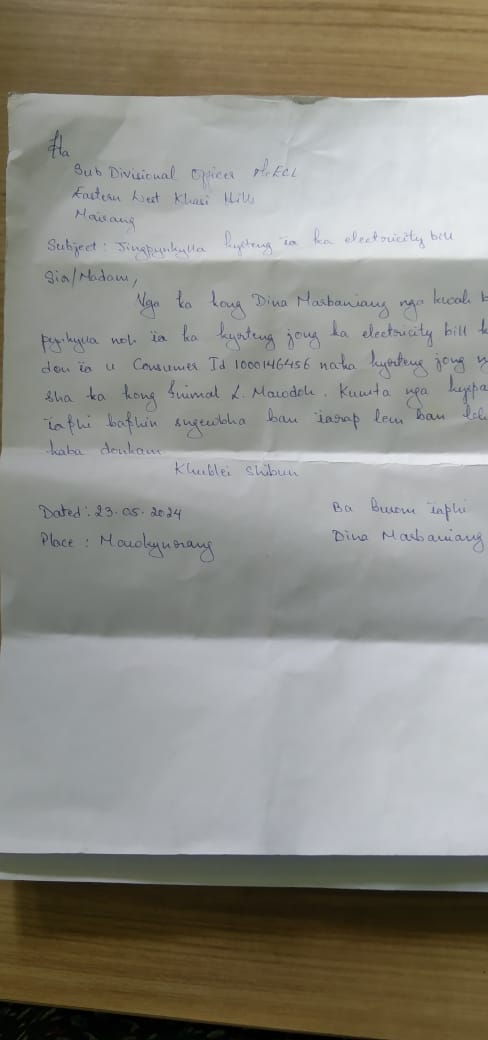 Ha
Sub Divisional Officer MeECL
Eastern West Khasi Hills
Mairang
Subject : Jingpynkylla kyrteng ïa ka electricity bill
Sir/Madam,
Nga ka kong Dina Marbaniang nga kwah b
pynkylla noh ïa ka kyrteng jong ka electricity bill k
don ïa u Consumer Id 1000146456 naka kyrteng jong
sha ka kong L. Mawdoh. Kumta nga kyrpa
ïaphi baphin sngewbha ban ïarap lem ban
kaba donkam
Khublei Shibun
Dated : 23.05.2024
Place : Mawkynrang
Ba burom ïaphi
Dina Marbaniang